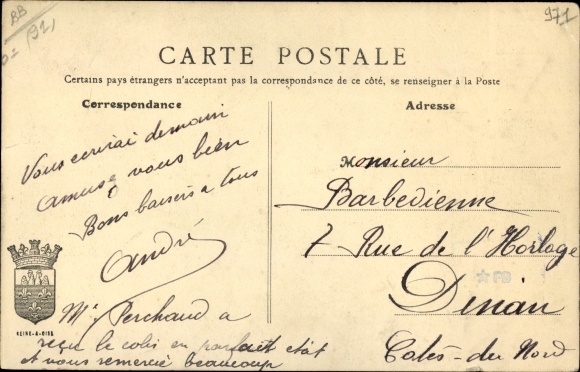 BB
(92)
971
CARTE POSTALE
Certains pays étrangers n'acceptant pas la correspondance de ce côté, se renseigner à la Poste
Correspondance
Vous ecrirai demain
amusé vous bien
Bons baisers a tous
André
Mr Perchaud a
reçu le colis en parfait état
et vous remercie beaucoup
SEINE-&-OISE
Adresse
Monsieur
Barbedienne
7 Rue de l'Horloge
Dinan
Cotes-du Nord